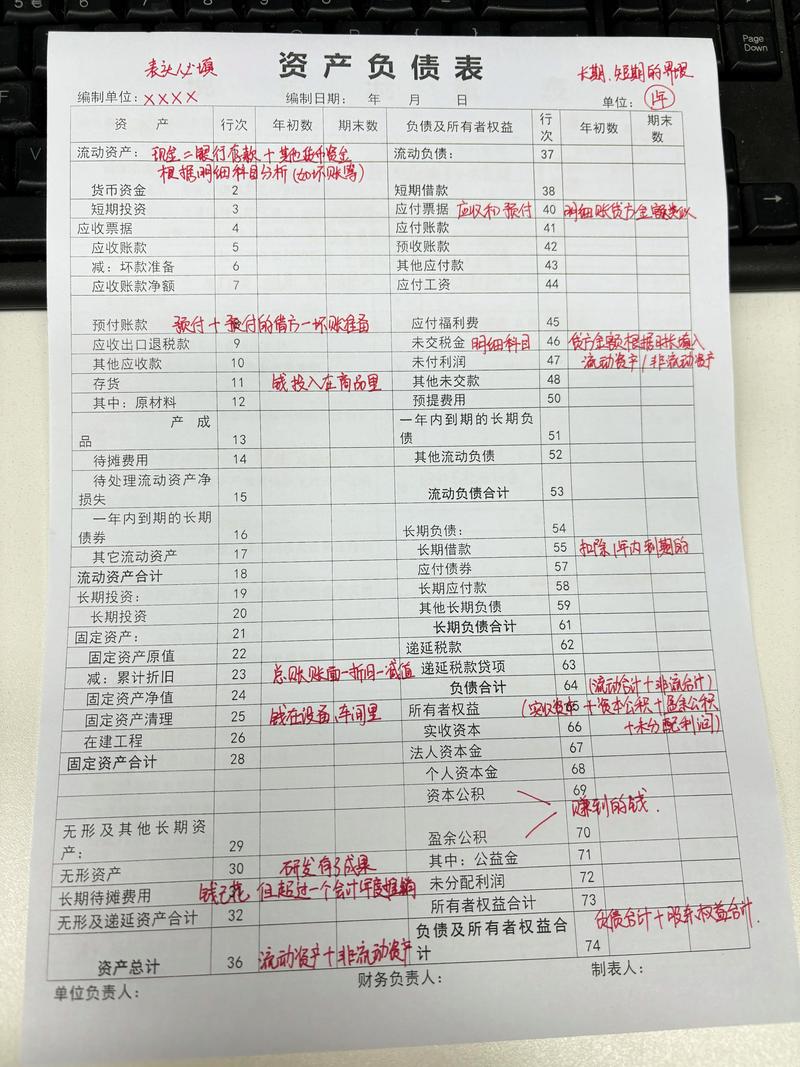 资产负债表
表头必填
长期、短期的界限
编制单位：XXXX 编制日期： 年 月 日 单位：1年
资 产 行次 年初数 期末数 负债及所有者权益 行次 年初数 期末数
流动资产： 现金=银行存款+其他货币资金 流动负债： 37
根据明细科目分析（如坏账等）
货币资金 2 短期借款 38
短期投资 3 应付票据 应收和预付 40 明细账贷方金额类以
应收票据 4 应付账款 41
应收账款 5 预收账款 42
减：坏款准备 6 其他应付款 43
应收账款净额 7 应付工资 44
预付账款 预付+预付的借方-坏账准备 应付福利费 45
应收出口退税款 9 未交税金 明细科目 46 贷方金额根据时长填入
其他应收款 10 未付利润 47 流动资产/非流动资产
存货 11 钱投入在商品里 其他未交款 48
其中：原材料 12 预提费用 50
产成品 13 一年内到期的长期负债 51
待摊费用 14 其他流动负债 52
待处理流动资产净损失 15 流动负债合计 53
一年内到期的长期债券 16 长期负债： 54
其它流动资产 17 长期借款 55 扣除1年内到期的
流动资产合计 18 应付债券 57
长期投资： 19 长期应付款 58
长期投资 20 其他长期负债 59
固定资产： 21 长期负债合计 61
固定资产原值 22 递延税款 62
减：累计折旧 23 总账账面-折旧-减值 递延税款贷项 63
固定资产净值 24 负债合计 64 （流动合计+非流合计）
固定资产清理 25 钱在设备、车间里 所有者权益 65 （实收资本+资本公积+盈余公积
在建工程 26 实收资本 66 +未分配利润）
固定资产合计 28 法人资本金 67
个人资本金 68
资本公积 69
赚到的钱.
无形及其他长期资产： 29 盈余公积 70
无形资产 30 研发有了成果 其中：公益金 71
长期待摊费用 钱已花 但超过一个会计年度摊销 未分配利润 72
无形及递延资产合计 32 所有者权益合计 73
负债合计+股东权益合计.
资产总计 36 流动资产+非流动资产 负债及所有者权益合计 74
单位负责人： 财务负责人： 制表人：